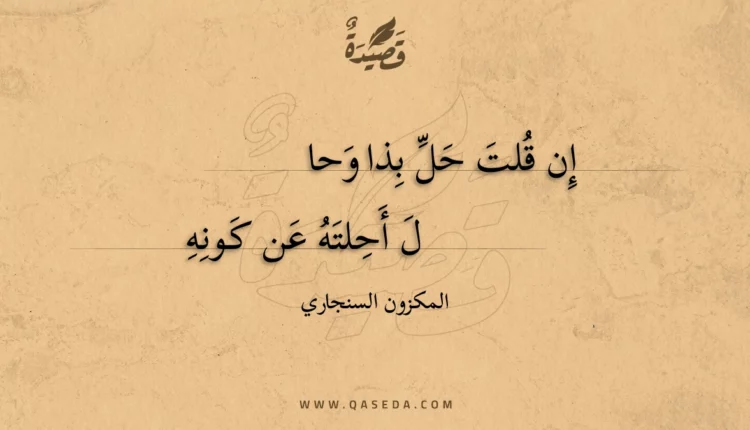 قَصِيدَةٌ
إِن قُلتَ حَلِّ بِذا وَحا
لَ أَحِلتَهُ عَن كَونِهِ
المكزون السنجاري
WWW.QASEDA.COM